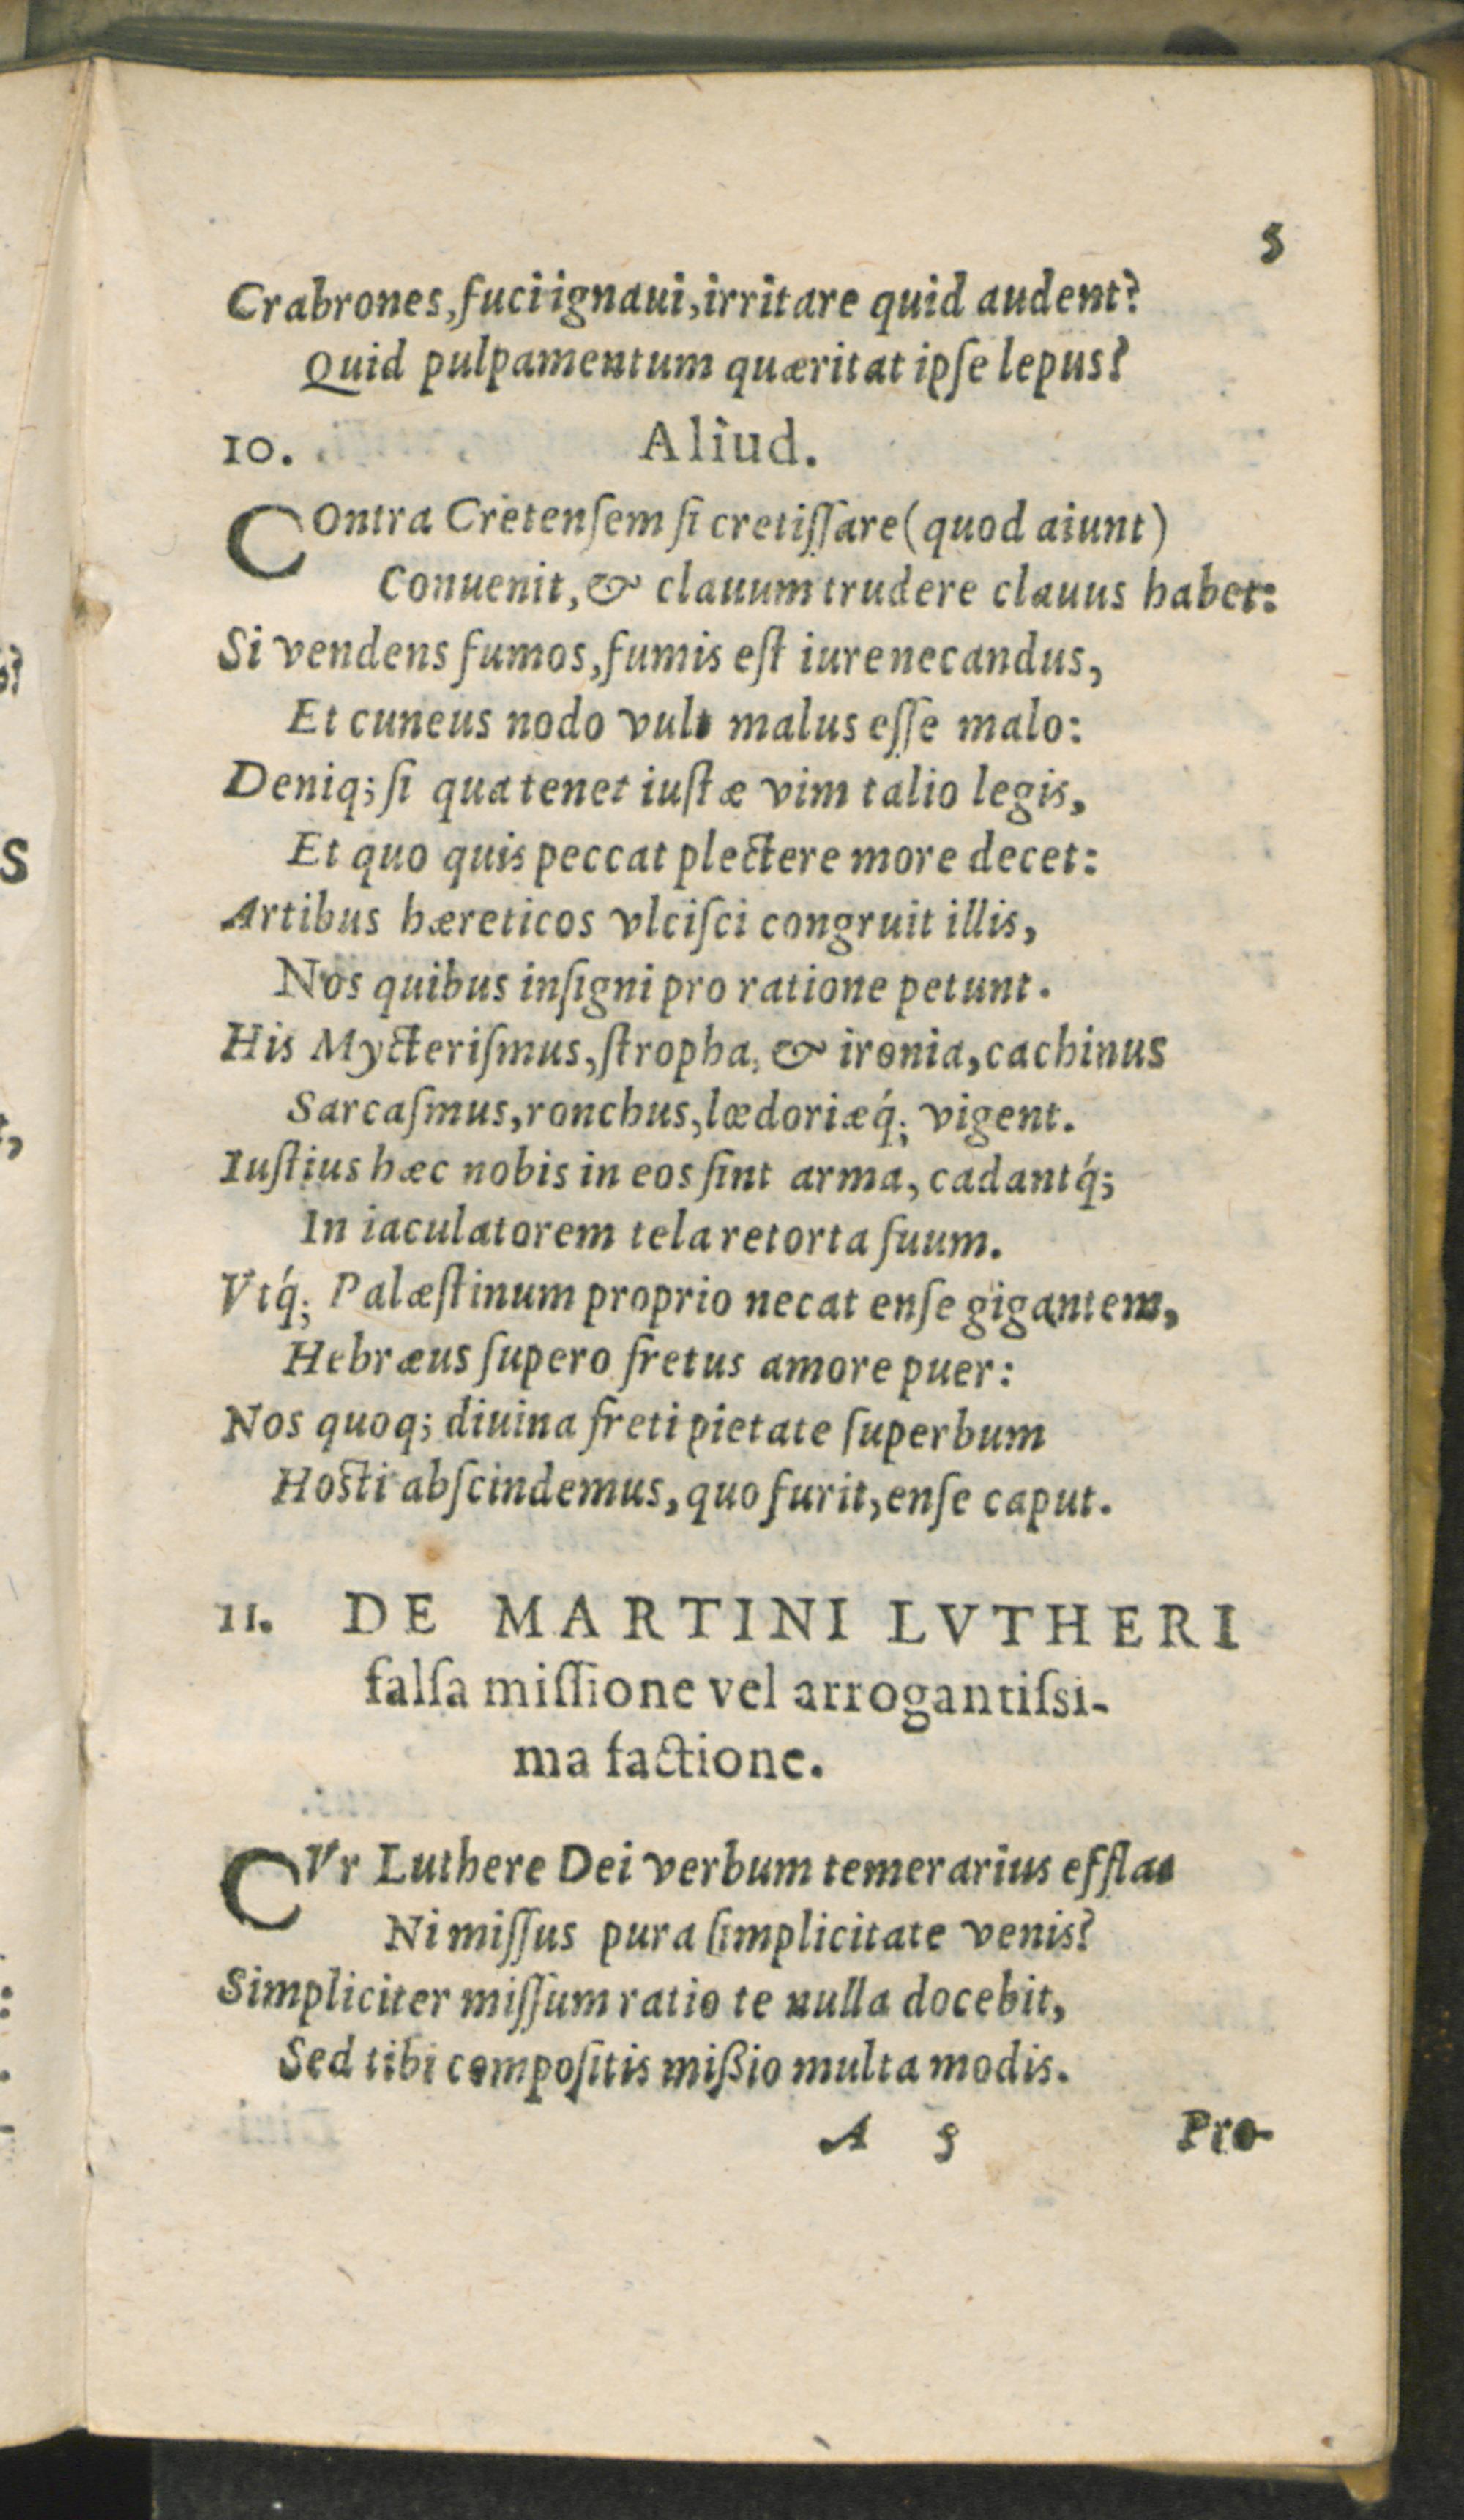 5
Crabrones, fuci ignaui, irritare quid audent?
Quid pulpamentum quæritat ipſe lepus?
10. Aliud.
COntra Cretenſem ſi cretiſſare (quod aiunt)
Conuenit, & clauum trudere clauus habet:
Si vendens fumos, fumis eſt iure necandus,
Et cuneus nodo vult malus eſſe malo:
Deniq; ſi qua tenet iuſtæ vim talio legis,
Et quo quis peccat plectere more decet:
Artibus hæreticos vlciſci congruit illis,
Nos quibus inſigni pro ratione petunt.
His Mycteriſmus, ſtropha, & ironia, cachinus
Sarcaſmus, ronchus, lœdoriæq́; vigent.
Iuſtius hæc nobis in eos ſint arma, cadantq́;
In iaculatorem tela retorta ſuum.
Vtq́; Palæſtinum proprio necat enſe gigantem,
Hebræus ſupero fretus amore puer:
Nos quoq; diuina freti pietate ſuperbum
Hoſti abſcindemus, quo furit, enſe caput.
11. DE MARTINI LVTHERI
falſa miſſione vel arrogantiſsi-
ma factione.
CVr Luthere Dei verbum temerarius efflas
Ni miſſus pura ſimplicitate venis?
Simpliciter miſſum ratio te nulla docebit,
Sed tibi compoſitis mißio multa modis.
A 5 Pro-
s?
S
t,
:
.
-